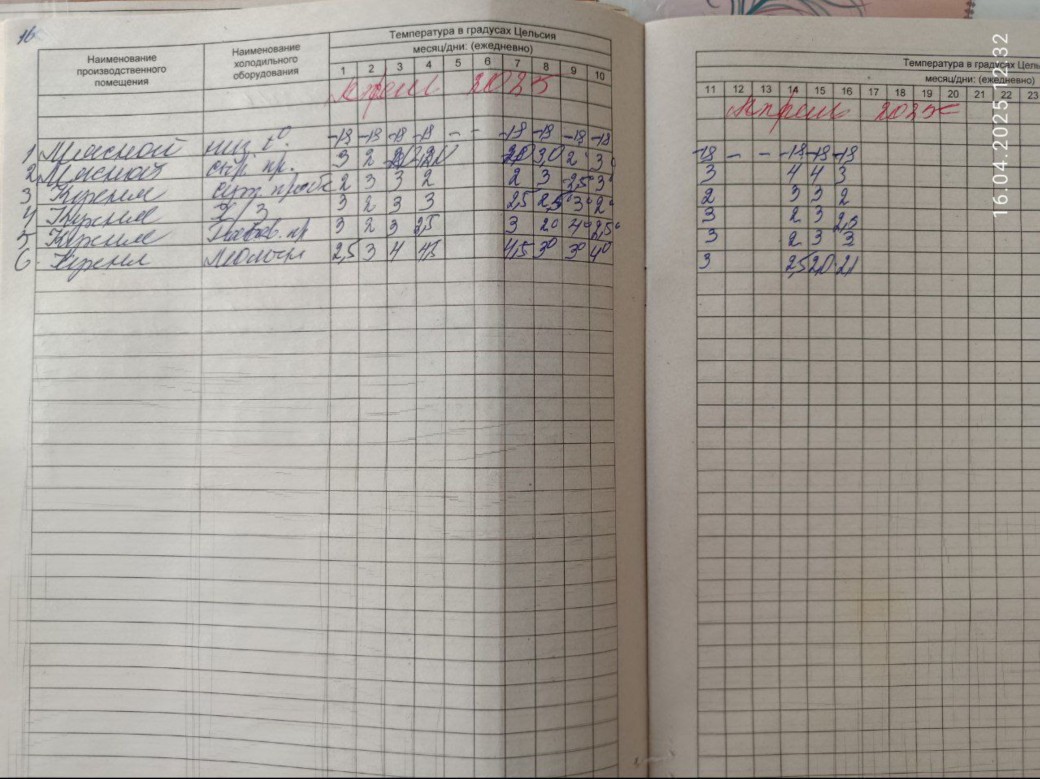 16
Температура в градусах Цельсия
Наименование производственного помещения
Наименование холодильного оборудования
месяц/дни: (ежедневно)
1 2 3 4 5 6 7 8 9 10
Апрель 2025
1 Мясной низ t° -18 -18 -18 -18 - - -18 -18 -18 -18
2 Мясной 3 2
3 сут. проба 2 3 3 2 2 3 2,5° 3°
4 3 2 3 3 2,5 2,5 3° 2°
5 3 2 3 2,5 3 2° 4° 2,5°
6 2,5 3 4 4,5 4,5 3° 3° 4°
Температура в градусах Цель
месяц/дни: (ежедневно)
11 12 13 14 15 16 17 18 19 20 21 22 23
Апрель 2025
-18 - - -18 -18 -18
3 4 4 3
2 3 3 2
3 2 3 2,5
3 2 3 3
3 2,5 2,0 21
16.04.2025 12:32